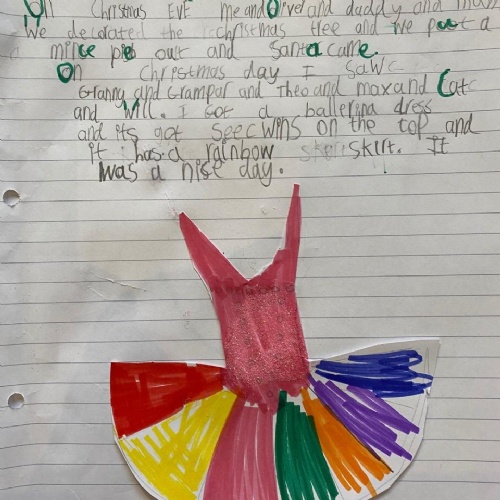 On Christmas EVE me and Olive and daddy and mum
We decorated the christmas tree and we poot a
mince pie out and Santa came.
On Christmas day I saw
Granny and Grampar and Theo and max and Cat
and Will. I Got a ballerina dress
and its got seecwins on the top and
it has a rainbow skirt. It
was a nise day.